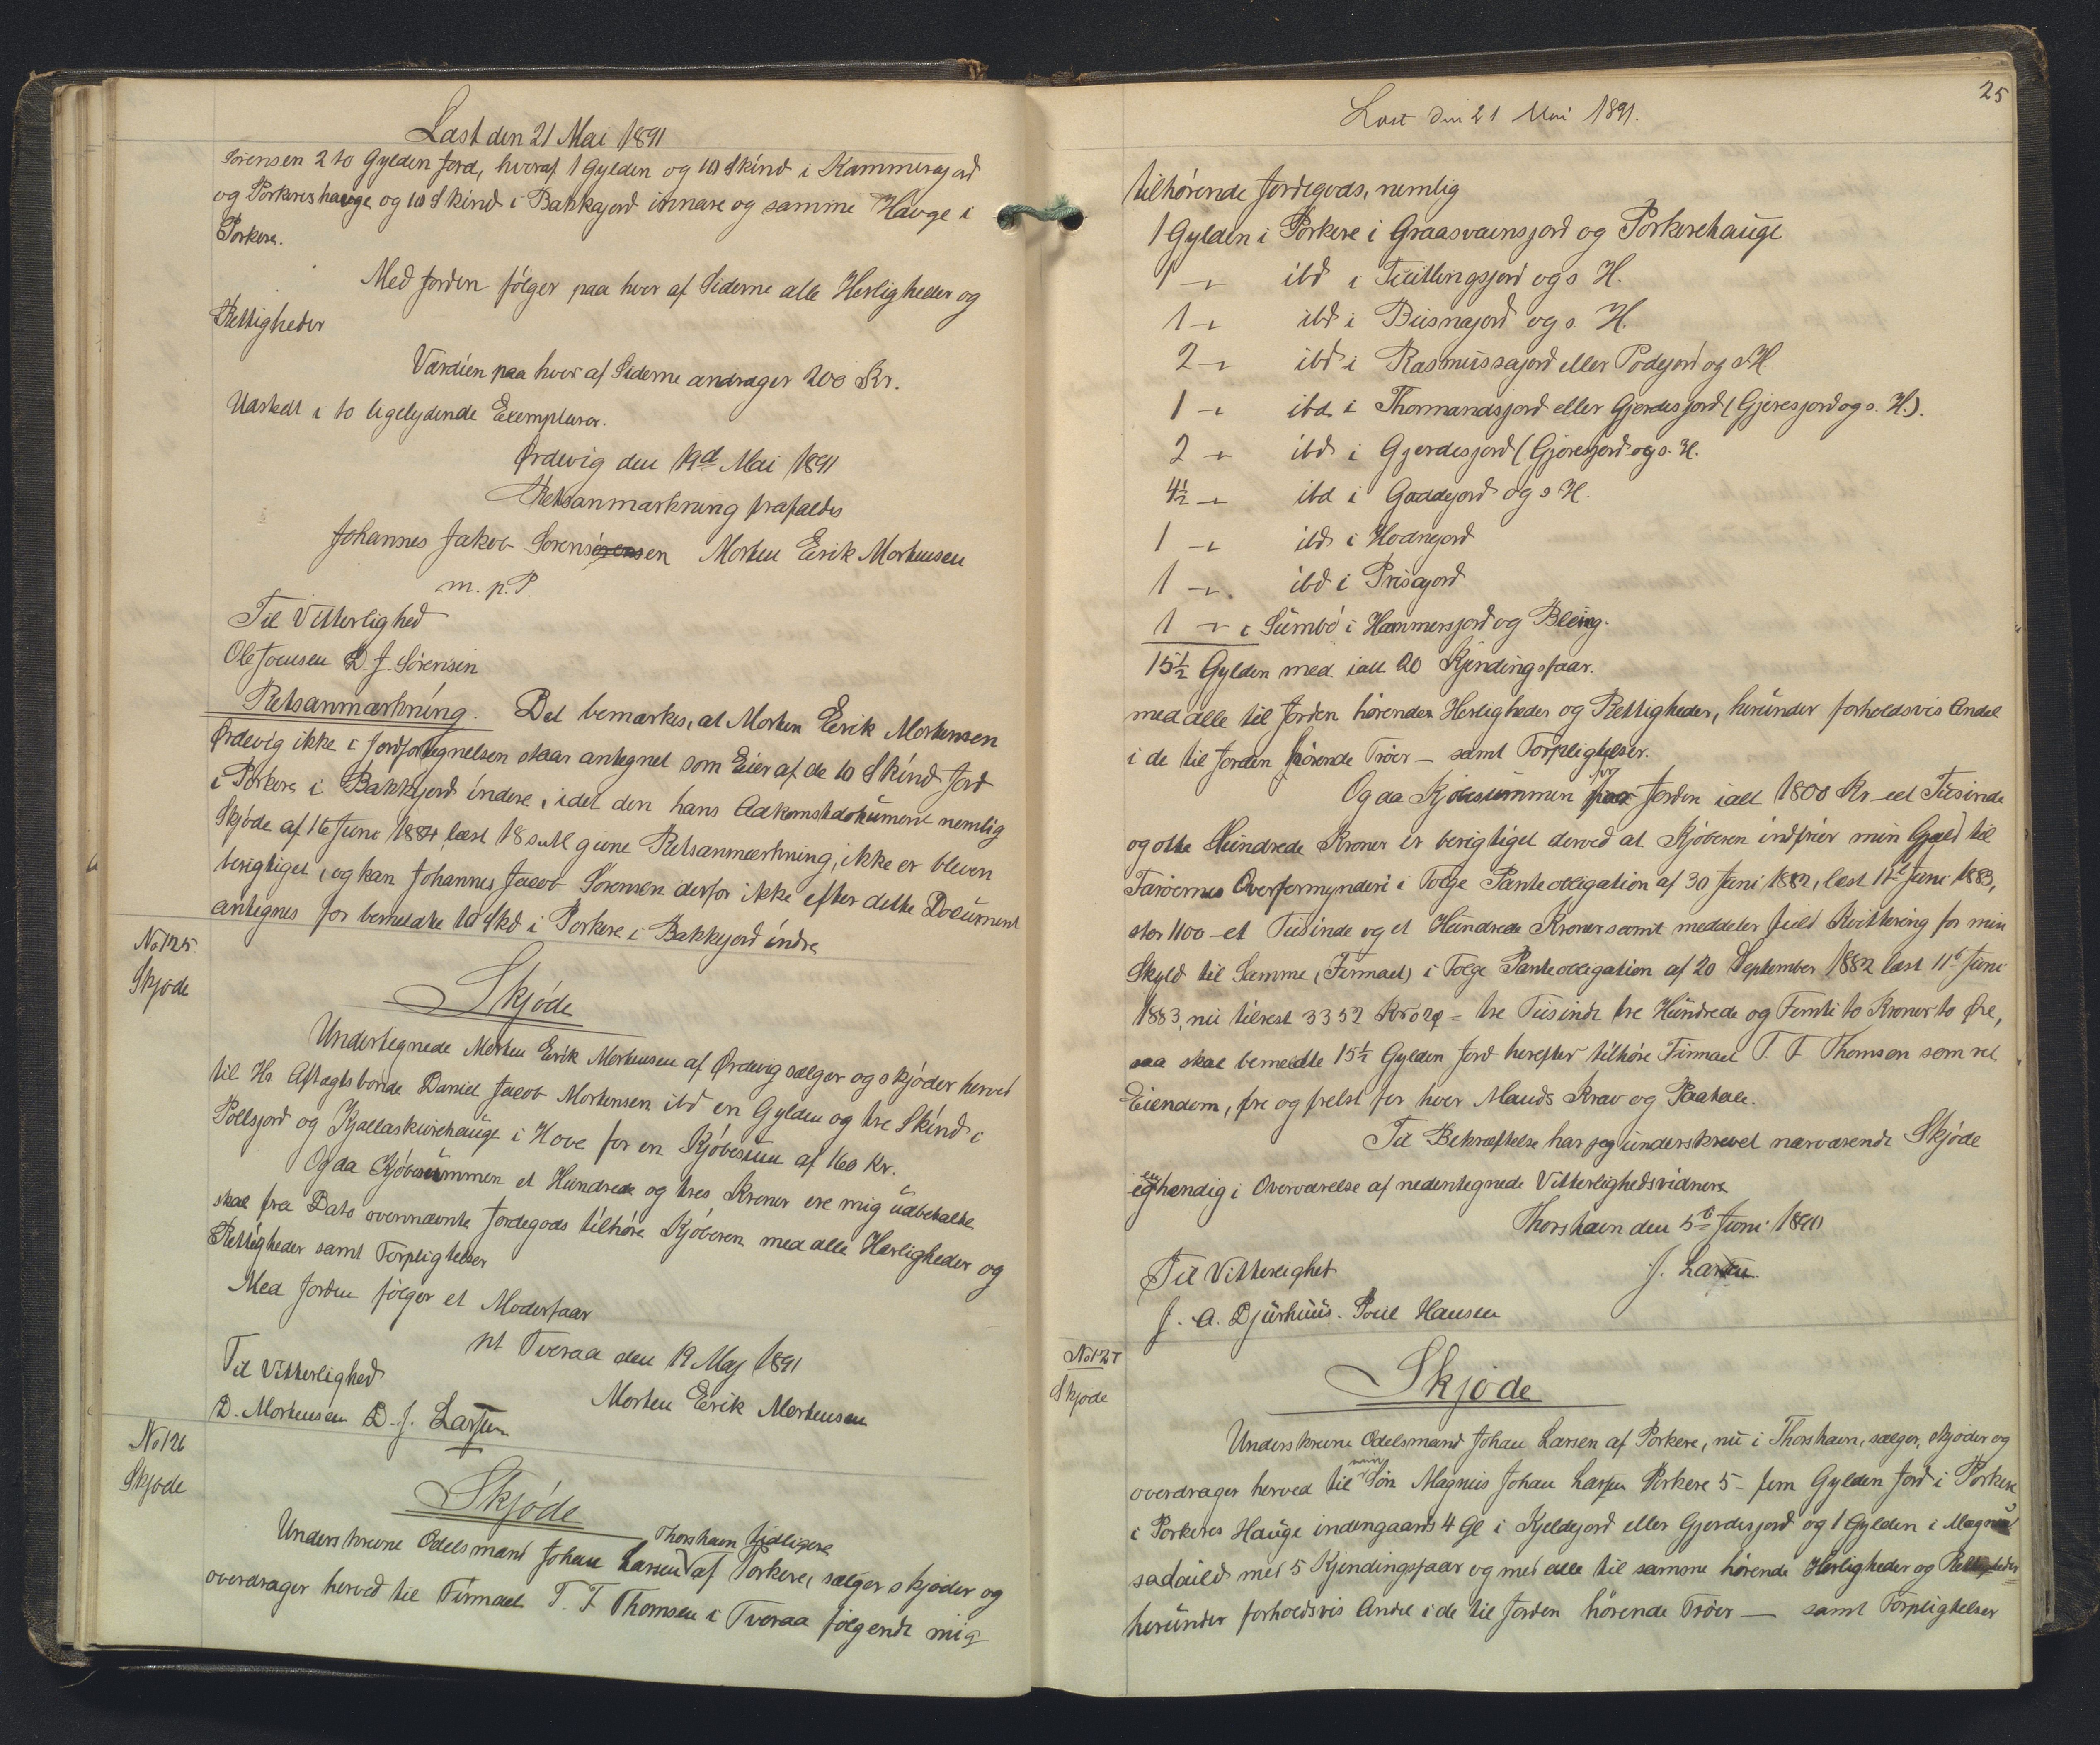 Læst den 21 Mai 1891
Sørensen 2 to Gylden Jord, hvoraf 1 Gylden og 10 Skind i Kammerajord
og Porkerishauge og 10 Skind i Bakkajord innare og samme Hauge i
Porkere.
Med Jorden følger paa hver af Siderne alle Herligheder og
Rettigheder
Værdien paa hver af Siderne andrager 200 Kr.
Udstedt i to ligelydende Exemplarer.
Ørdevig den 19d Mai 1891
Retsanmærkning frafaldes
Johannes Jakob Sorensørensen Morten Erik Mortensen
m. p. P.
Til Vitterlighed
Ole Joensen D. J. Sörensen
Retsanmærkning. Det bemærkes, at Morten Erik Mortensen
Ørdevig ikke i Jordfortegnelsen staar antegnet som Eier af de 10 Skind Jord
i Porkere i Bakkejord indere, idet den hans Adkomstdokument nemlig
Skjøde af 16 Juni 1884 læst 18 s.M givne Retsanmærkning, ikke er bleven
berigtiget, og kan Johannes Jacob Sorensen derfor ikke efter dette Document
antegnes for bemeldte 10 Skd i Porkere i Bakkejord indre
No 125
Skjøde
Skjøde
Undertegnede Morten Erik Mortensen af Ørdevig sælger og skjøder herved
til Hr Aftægtsbonde Daniel Jacob Mortensen ibd en Gylden og tre Skind i
Pollsjord og Kjallaskurehauge i Hove for en Kjøbesum af 160 Kr.
Og da Kjøbesummen et Hundrede og tres Kroner ere mig udbetalte
skal fra Dato overnævnte Jordegods tilhøre Kjøberen med alle Herligheder og
Rettigheder samt Forpligtelser
Med Jorden følger et Moderfaar
pt Tveraa den 19 Maj 1891
Til Vitterlighed
Morten Erik Mortensen
D. Mortensen D. J. Larsen
No 126
Skjøde
Skjøde
Thorshavn tidligere
Underskrevne Odelsmand Johan Larsen af Porkere, sælger skjøder og
overdrager herved til Firmaet T. F Thomsen i Tveraa følgende mig
25
Læst den 21 Mai 1891.
tilhørende Jordegods, nemlig
1 Gylden i Porkere i Graasvainsjord og Porkerehauge
1 - ibd i Tuitlingsjord og s H.
1 - ibd i Buisnajord og s. H.
2 - ibd i Rasmussajord eller Podejord og s H.
1 - ibd i Thormandsjord eller Gjerdesjord (Gjeresjord og s. H.).
2 - ibd i Gjerdesjord (Gjoresjord og s. H.
4½ - ibd i Gaddejord og s H.
1 - ibd i Hodnejord
1 - ibd i Prisajord
1 - i Sumbö i Hammersjord og Bleing.
15½ Gylden med ialt 20 Kjendingsfaar.
med alle til Jorden hørender Herligheder og Rettigheder, herunder forholdsvis Andel
i de til Jorden hørende Trøer – samt Forpligtelser.
Og da Kjøbesummen for Jorden ialt 1800 Kr – et Tusinde
og otte Hundrede Kroner er berigtiget derved at Kjøberen indfrier min Gjæld til
Færøernes Overformynderi i Følge Panteobligation af 30 Juni 1882, læst 11t Juni 1883,
stor 1100 – et Tusinde og et Hundrede Kroner samt meddeler fuld Kvittering for min
Skyld til Samme (Firmaet) i Følge Panteobligation af 20 September 1882 læst 11t Juni
1883, nu tilrest 3352 Kr 02 Ø = tre Tusinde tre Hundrede og Femti to Kroner to Øre,
saa skal bemeldte 15½ Gylden Jord herefter tilhøre Firmaet T. F. Thomsen som ret
Eiendom, fri og frelst for hver Mands Krav og Paatale.
Til Bekræftelse har jeg underskrevet nærværende Skjøde
eghændig i Overværelse af nedentegnede Vitterlighedsvidner
Thorshavn den 5t Juni 1890
Til Vitterlighed
J. Larsen
J. A. Djurhuus. Poul Hansen
No 127
Skjøde
Skjøde
Underskrevne Odelsmand Johan Larsen af Porkere, nu i Thorshavn, sælger, skjøder og
overdrager herved til min Søn Magnus Johan Larsen Porkere 5 – fem Gylden Jord i Porkere
i Porkeres Hauge indengaards 4 Gl i Kjeldejord eller Gjerdesjord og 1 Gylden i Magnus
sadaild med 5 Kjendingsfaar og med alle til samme hørende Herligheder og Rettigheder
herunder forholdsvis Andel i de til Jorden hörende Tröer — samt Forpligtelser